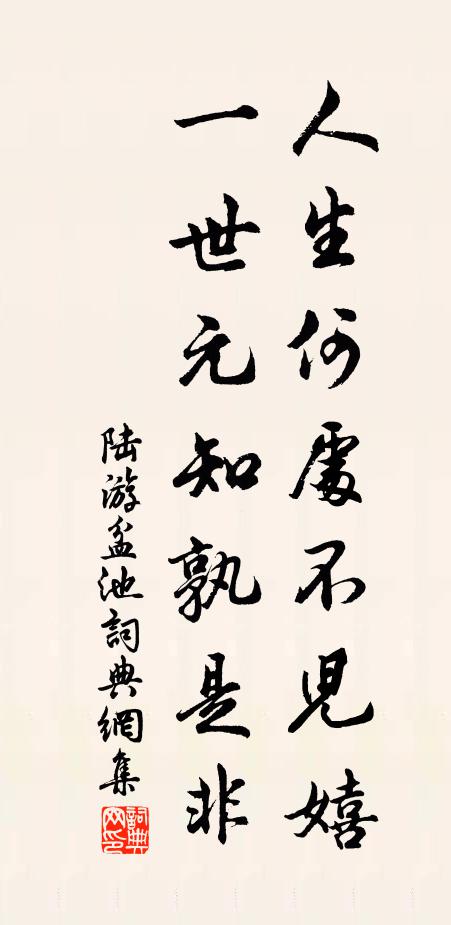 人生何處不兒嬉
一世元知孰是非
陆游盆池詞典網集
詞典网印